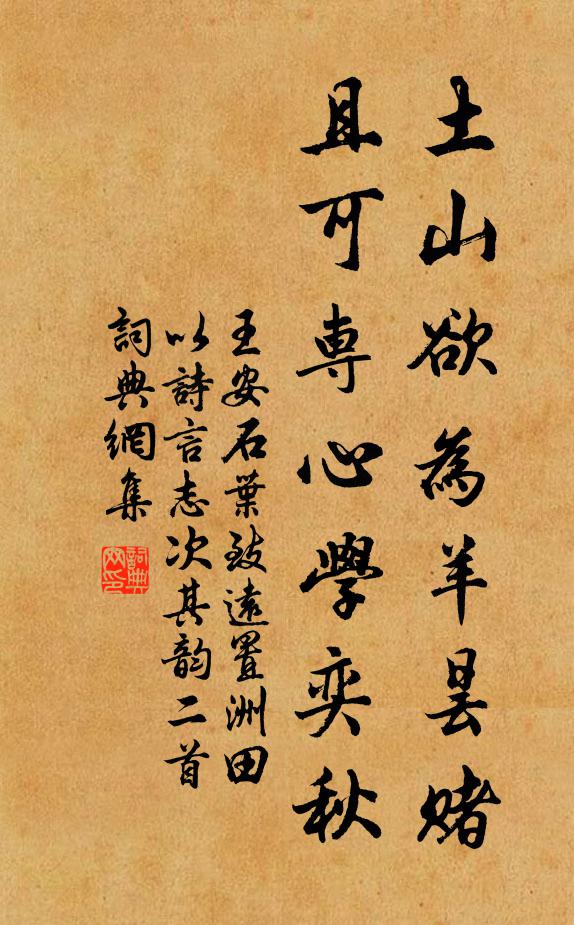 土山欲為羊曇賭
且可専心學奕秋
王安石葉致遠置洲田
以詩言志次其韵二首
詞典網集
詞典
网印